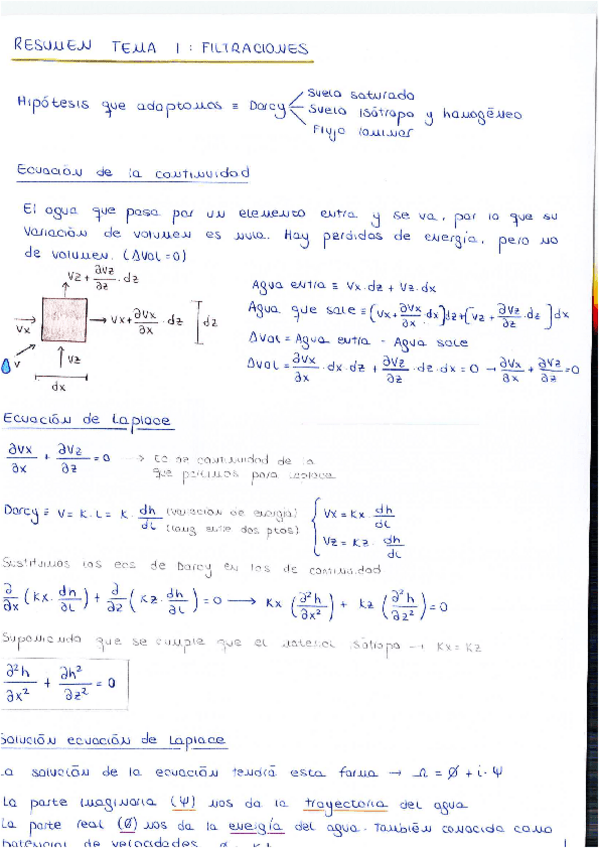 RESUMEN TEMA 1: FILTRACIONES
Hipótesis que adoptamos ≡ Darcy
Suelo saturado
Suelo isótropo y homogéneo
Flujo laminar
Ecuación de la continuidad
El agua que pasa por un elemento entra y se va, por lo que su
variación de volumen es nula. Hay pérdidas de energía, pero no
de volumen. (ΔVol = 0)
Vz + ∂Vz/∂z · dz
Vx
Vx + ∂Vx/∂x · dz
dz
V
Vz
dx
Agua entra ≡ Vx·dz + Vz·dx
Agua que sale ≡ (Vx + ∂Vx/∂x · dx) dz + [Vz + ∂Vz/∂z · dz] dx
ΔVol = Agua entra - Agua sale
ΔVol = ∂Vx/∂x · dx·dz + ∂Vz/∂z · dz·dx = 0 → ∂Vx/∂x + ∂Vz/∂z = 0
Ecuación de Laplace
∂Vx/∂x + ∂Vz/∂z = 0 → Ec de continuidad de la
que partimos para Laplace
Darcy ≡ V = K·i = K · dh/dL (variación de energía) (long entre dos ptos)
Vx = Kx · dh/dL
Vz = Kz · dh/dL
Sustituimos las ecs de Darcy en las de continuidad
∂/∂x (Kx · dh/∂L) + ∂/∂z (Kz · dh/∂L) = 0 → Kx (∂²h/∂x²) + Kz (∂²h/∂z²) = 0
Suponiendo que se cumple que el material isótropo → Kx = Kz
∂²h/∂x² + ∂h²/∂z² = 0
Solución ecuación de Laplace
La solución de la ecuación tendrá esta forma → Ω = Ø + i·Ψ
La parte imaginaria (Ψ) nos da la trayectoria del agua
La parte real (Ø) nos da la energía del agua. También conocida como
potencial de velocidades